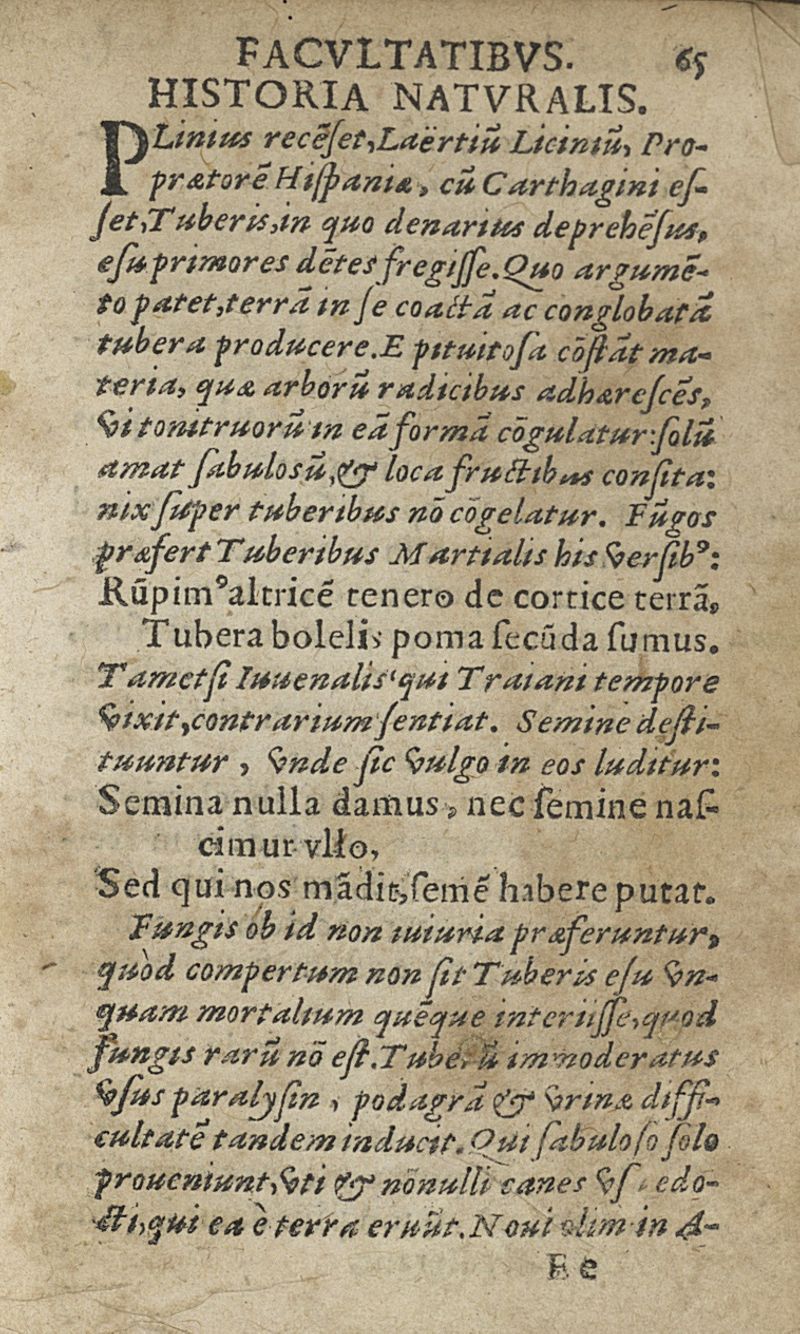 FACVLTATIBVS. 65
HISTORIA NATVRALIS.
PLinius recēset, Laërtiū Licinium, Pro-
prætorē Hispaniæ, cū Carthagini es-
set, Tuberis, in quo denarius deprehēsus,
esu primores dētes fregisse. Quo argumē-
to patet, terrā in se coactā ac conglobatā
tubera producere. E pituitosa cōstāt ma-
teria, quæ arborū radicibus adhærescēs,
vi tonitruorū in eā formā cōgulatur: solū
amat sabulosū, & loca fructibus consita:
nix super tuberibus nō cōgelatur. Fūgos
præfert Tuberibus Martialis his versibꝰ:
Rūpimꝰ altricē tenero de cortice terrā,
Tubera bolelis poma secūda sumus.
Tametsi Iuuenalis qui Traiani tempore
vixit, contrarium sentiat. Semine desti-
tuuntur, vnde sic vulgo in eos luditur:
Semina nulla damus, nec semine nas-
cimur vllo,
Sed qui nos mādit, semē habere putat.
Fungis ob id non iuiuria præferuntur,
quòd compertum non sit Tuberis esu vn-
quam mortalium quēque interiisse, quod
fungis rarū nō est. Tuberū immoderatus
vsus paralysin, podagrā & vrinæ diffi-
cultatē tandem inducit. Qui sabuloso solo
proueniunt, vti & nōnulli canes edo-
cti, qui ea è terra eruūt. Noui olim in A-
Ee